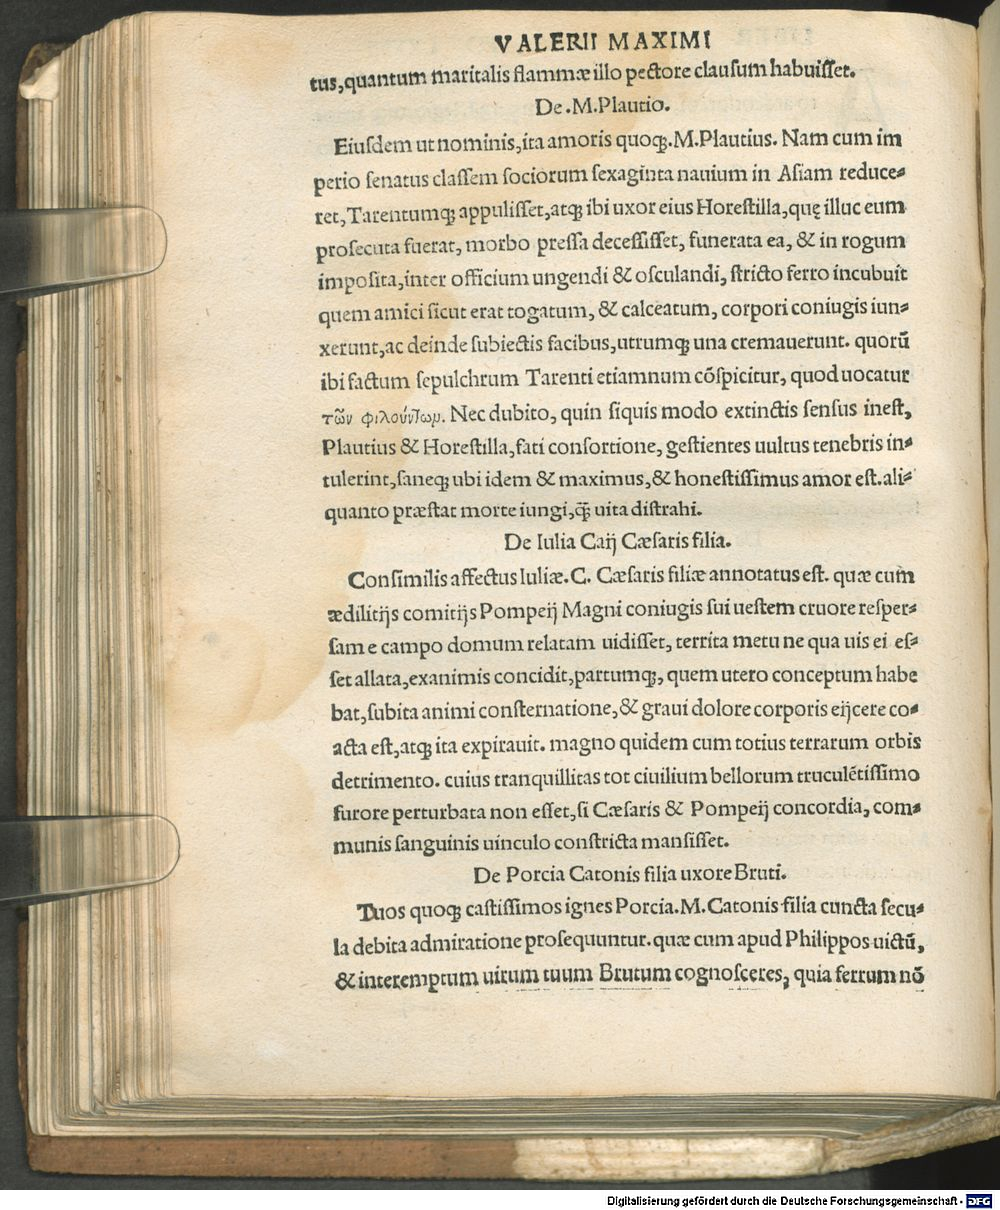 VALERII MAXIMI
tus, quantum maritalis flammæ illo pectore clausum habuisset.
De .M. Plautio.
Eiusdem ut nominis, ita amoris quoqꝫ. M. Plautius. Nam cum im
perio senatus classem sociorum sexaginta nauium in Asiam reduce-
ret, Tarentumqꝫ appulisset, atqꝫ ibi uxor eius Horestilla, quę illuc eum
prosecuta fuerat, morbo pressa decessisset, funerata ea, & in rogum
imposita, inter officium ungendi & osculandi, stricto ferro incubuit
quem amici sicut erat togatum, & calceatum, corpori coniugis iun-
xerunt, ac deinde subiectis facibus, utrumqꝫ una cremauerunt. quorũ
ibi factum sepulchrum Tarenti etiamnum cõspicitur, quod uocatur
τῶν φιλούντων. Nec dubito, quin siquis modo extinctis sensus inest,
Plautius & Horestilla, fati consortione, gestientes uultus tenebris in-
tulerint, saneqꝫ ubi idem & maximus, & honestissimus amor est. ali-
quanto præstat morte iungi, q̃ꝫ uita distrahi.
De Iulia Caij Cæsaris filia.
Consimilis affectus Iuliæ. C. Cæsaris filiæ annotatus est. quæ cum
ædilitijs comitijs Pompeij Magni coniugis sui uestem cruore resper-
sam e campo domum relatam uidisset, territa metu ne qua uis ei es-
set allata, exanimis concidit, partumqꝫ, quem utero conceptum habe
bat, subita animi consternatione, & graui dolore corporis eijcere co-
acta est, atqꝫ ita expirauit. magno quidem cum totius terrarum orbis
detrimento. cuius tranquillitas tot ciuilium bellorum truculẽtissimo
furore perturbata non esset, si Cæsaris & Pompeij concordia, com-
munis sanguinis uinculo constricta mansisset.
De Porcia Catonis filia uxore Bruti.
Tuos quoqꝫ castissimos ignes Porcia. M. Catonis filia cuncta secu-
la debita admiratione prosequuntur. quæ cum apud Philippos uictũ,
& interemptum uirum tuum Brutum cognosceres, quia ferrum nõ
Digitalisierung gefördert durch die Deutsche Forschungsgemeinschaft - DFG